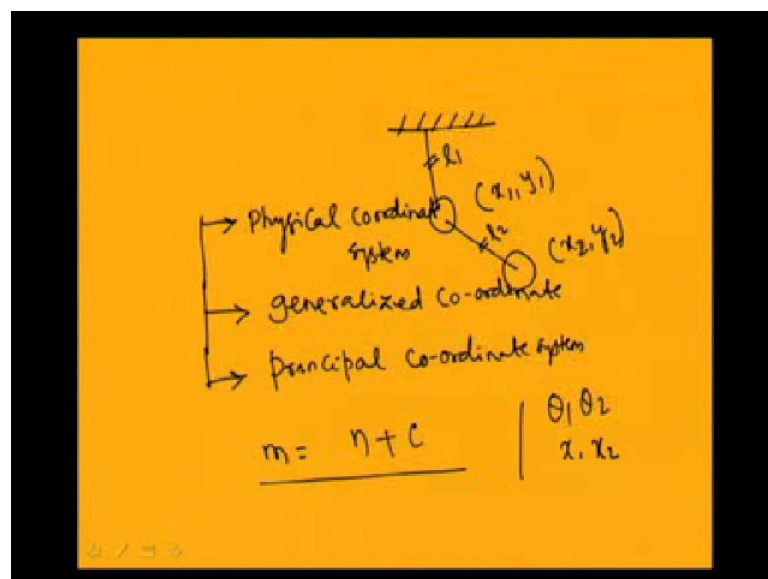 l1
(x1, y1)
Physical Coordinate
system
l2
(x2, y2)
generalized Co-ordinate
principal Co-ordinate system
m = n + c
θ1 θ2
x1 x2